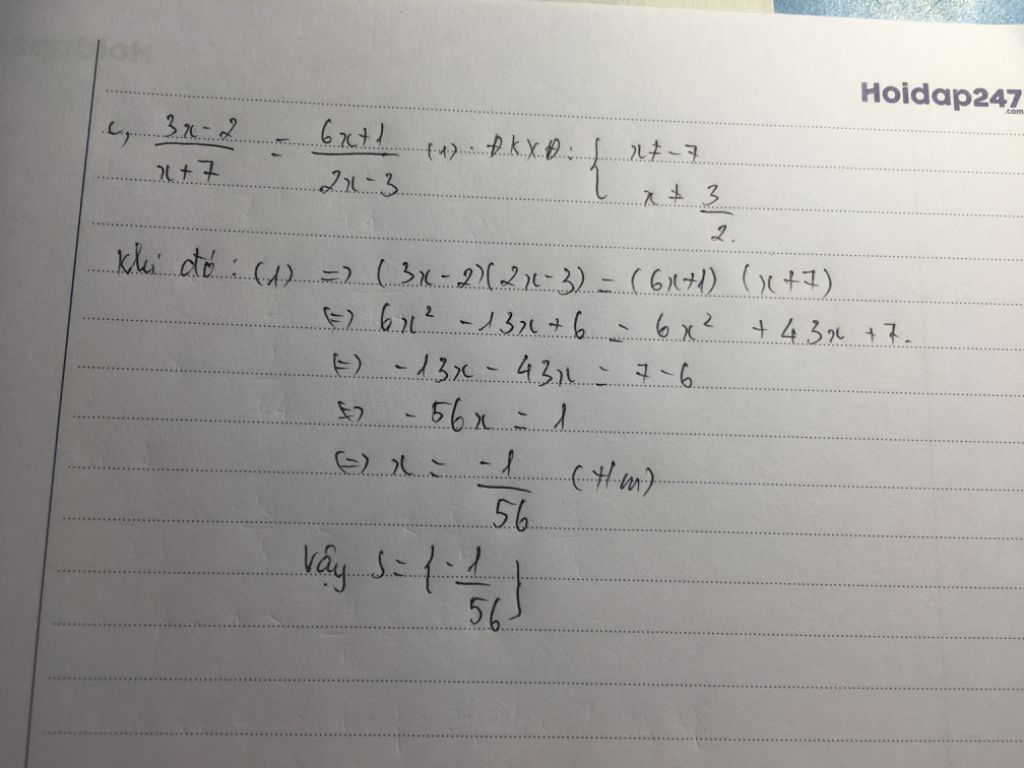 Hoidap247
.com
c, \frac{3x-2}{x+7} = \frac{6x+1}{2x-3} (1). ĐKXĐ: { x ≠ -7
x ≠ \frac{3}{2}.
Khi đó: (1) => (3x-2)(2x-3) = (6x+1) (x+7)
<=> 6x² - 13x + 6 = 6x² + 43x + 7.
<=> -13x - 43x = 7 - 6
<=> -56x = 1
<=> x = \frac{-1}{56} (t/m)
Vậy S = { -\frac{1}{56} }